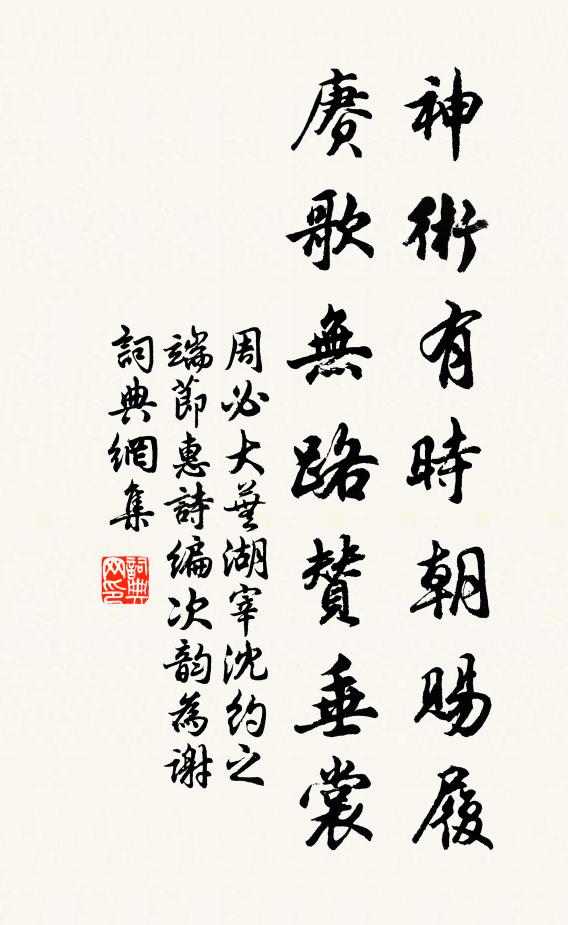 神術有時朝賜履
賡歌無路贊垂裳
周必大蕪湖宰沈約之
端節惠詩編次韵為謝
詞典網集
詞典网印